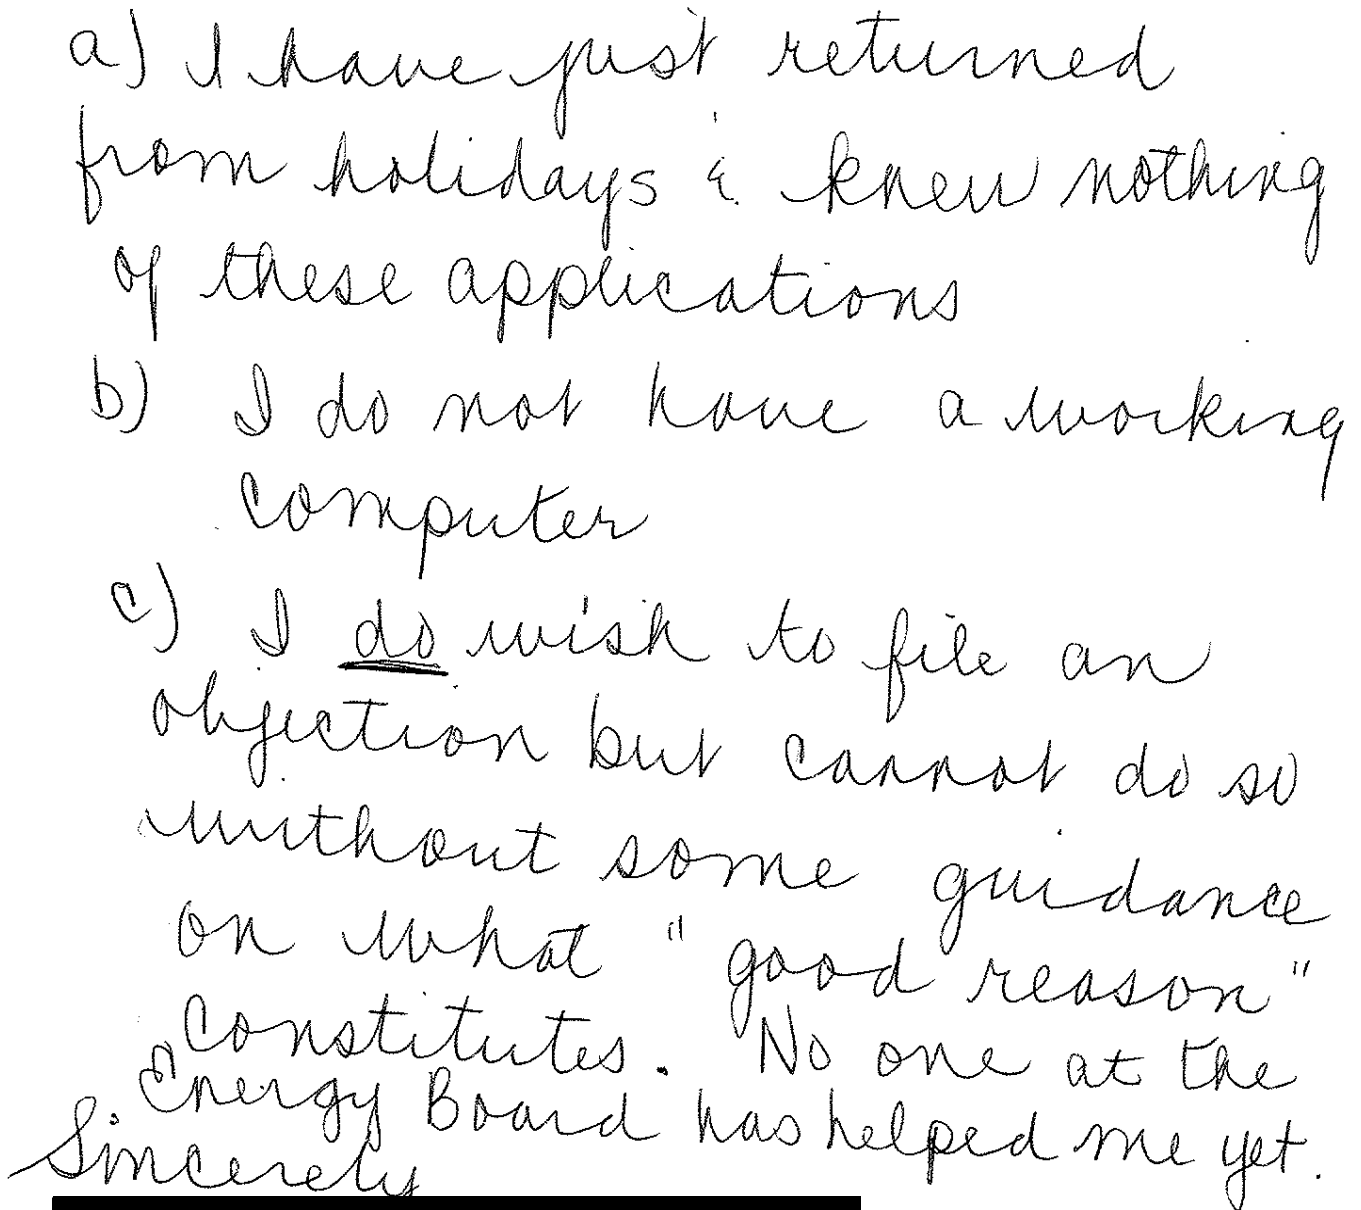 a) I have just returned
from holidays & knew nothing
of these applications
b) I do not have a working
computer
c) I do wish to file an
objection but cannot do so
without some guidance
on what "good reason"
constitutes. No one at the
Energy Board has helped me yet.
Sincerely